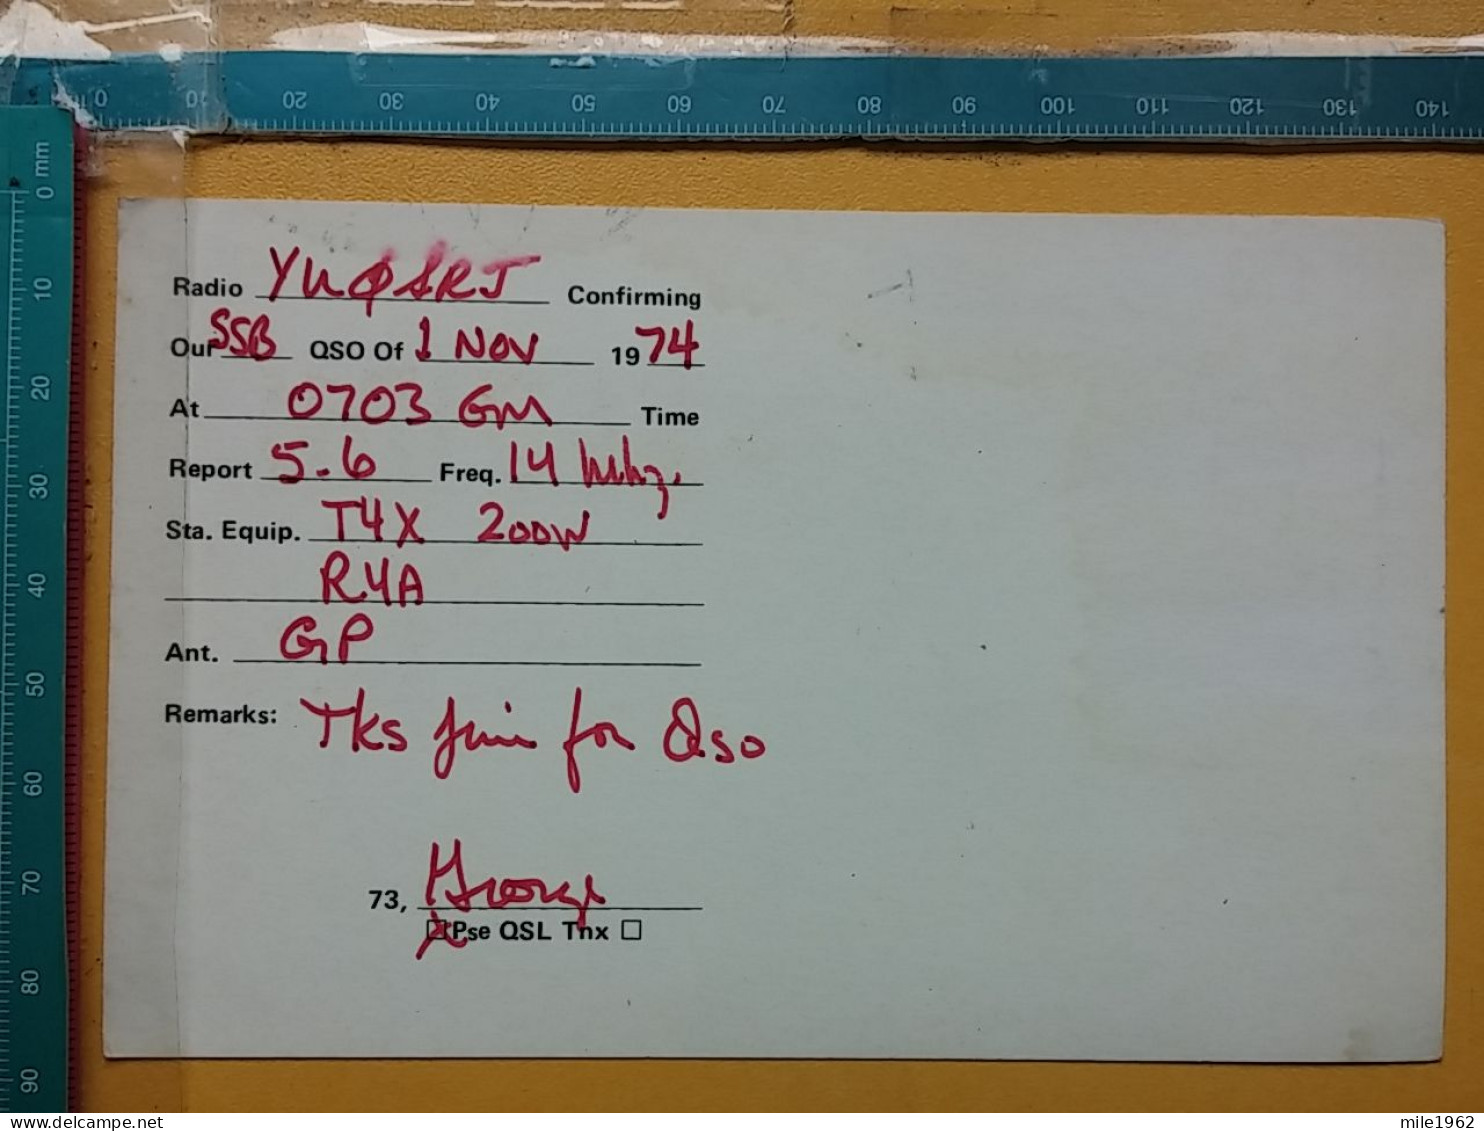 0 10 20 30 40 50 60 70 80 90 100 110 120 130 140
0 mm 10 20 30 40 50 60 70 80 90
Radio Confirming
Our SSB QSO Of 1 NOV 1974
At 0703 GM Time
Report 5-6 Freq. 14 Mhz.
Sta. Equip. T4X 200W
R4A
Ant. GP
Remarks: Tks for QSO
73, George
Pse QSL Tnx
mile1962